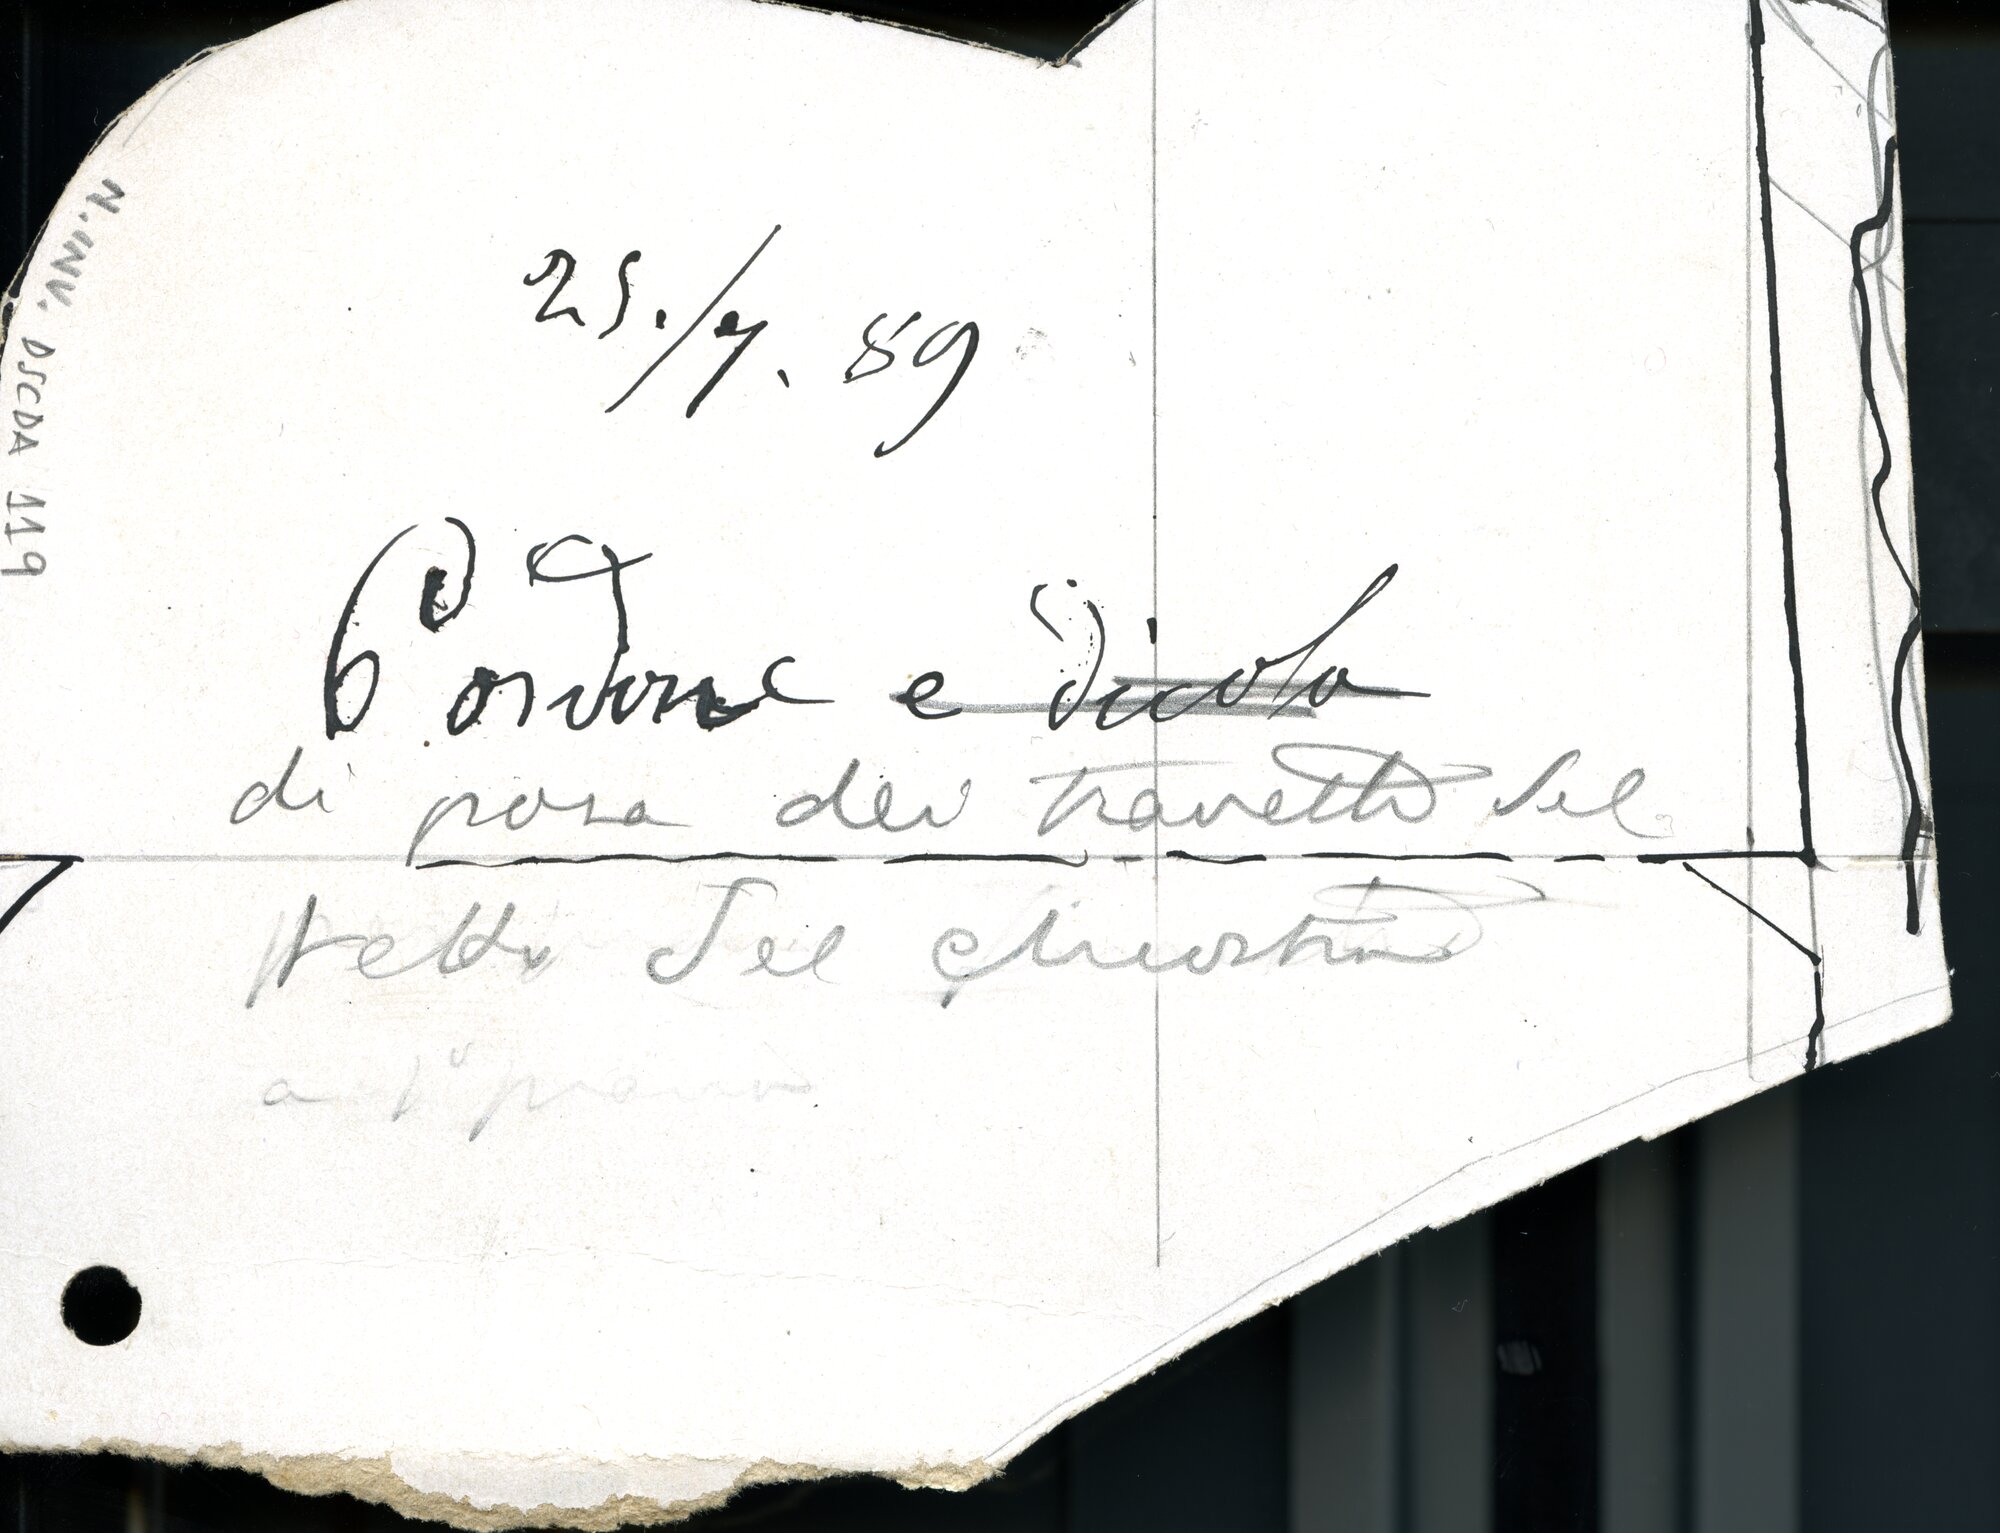 N. INV. DSCDA 119
25./7. 89
Cordone edicola
di posa dei travetti del
tetto del chiostro
a 1° piano